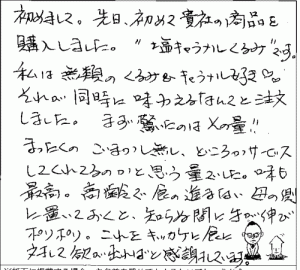 初めまして。先日、初めて貴社の商品を
購入しました。"塩キャラナルくるみ"です。
私は無類のくるみ&キャラナル好き♡
それが同時に味わえるなんてと注文
しました。まず驚いたのはその量!!
まったくのごまかし無し、どころかサービス
してくれてるのか?と思う量でした。味も
最高。高齢で食の進まない母の側
に置いておくと、知らぬ間に手が伸び
ポリポリ。これをキッカケに食に
対して欲が出ればと感謝しています。